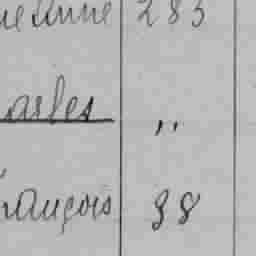 ne Anne 283
arles "
rançois 38